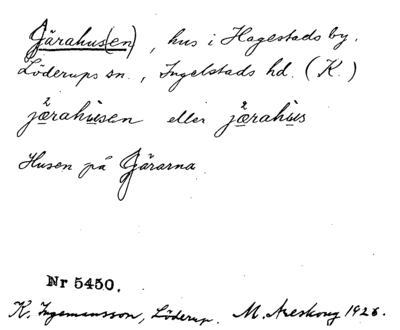 Järahus(en), hus i Hagestads by.
Löderups sn., Ingelstads hd. (K.)
jærahusen eller jærahus
Husen på Järarna
Nr 5450.
K. Ingemansson, Löderup. M. Areskoug 1926.